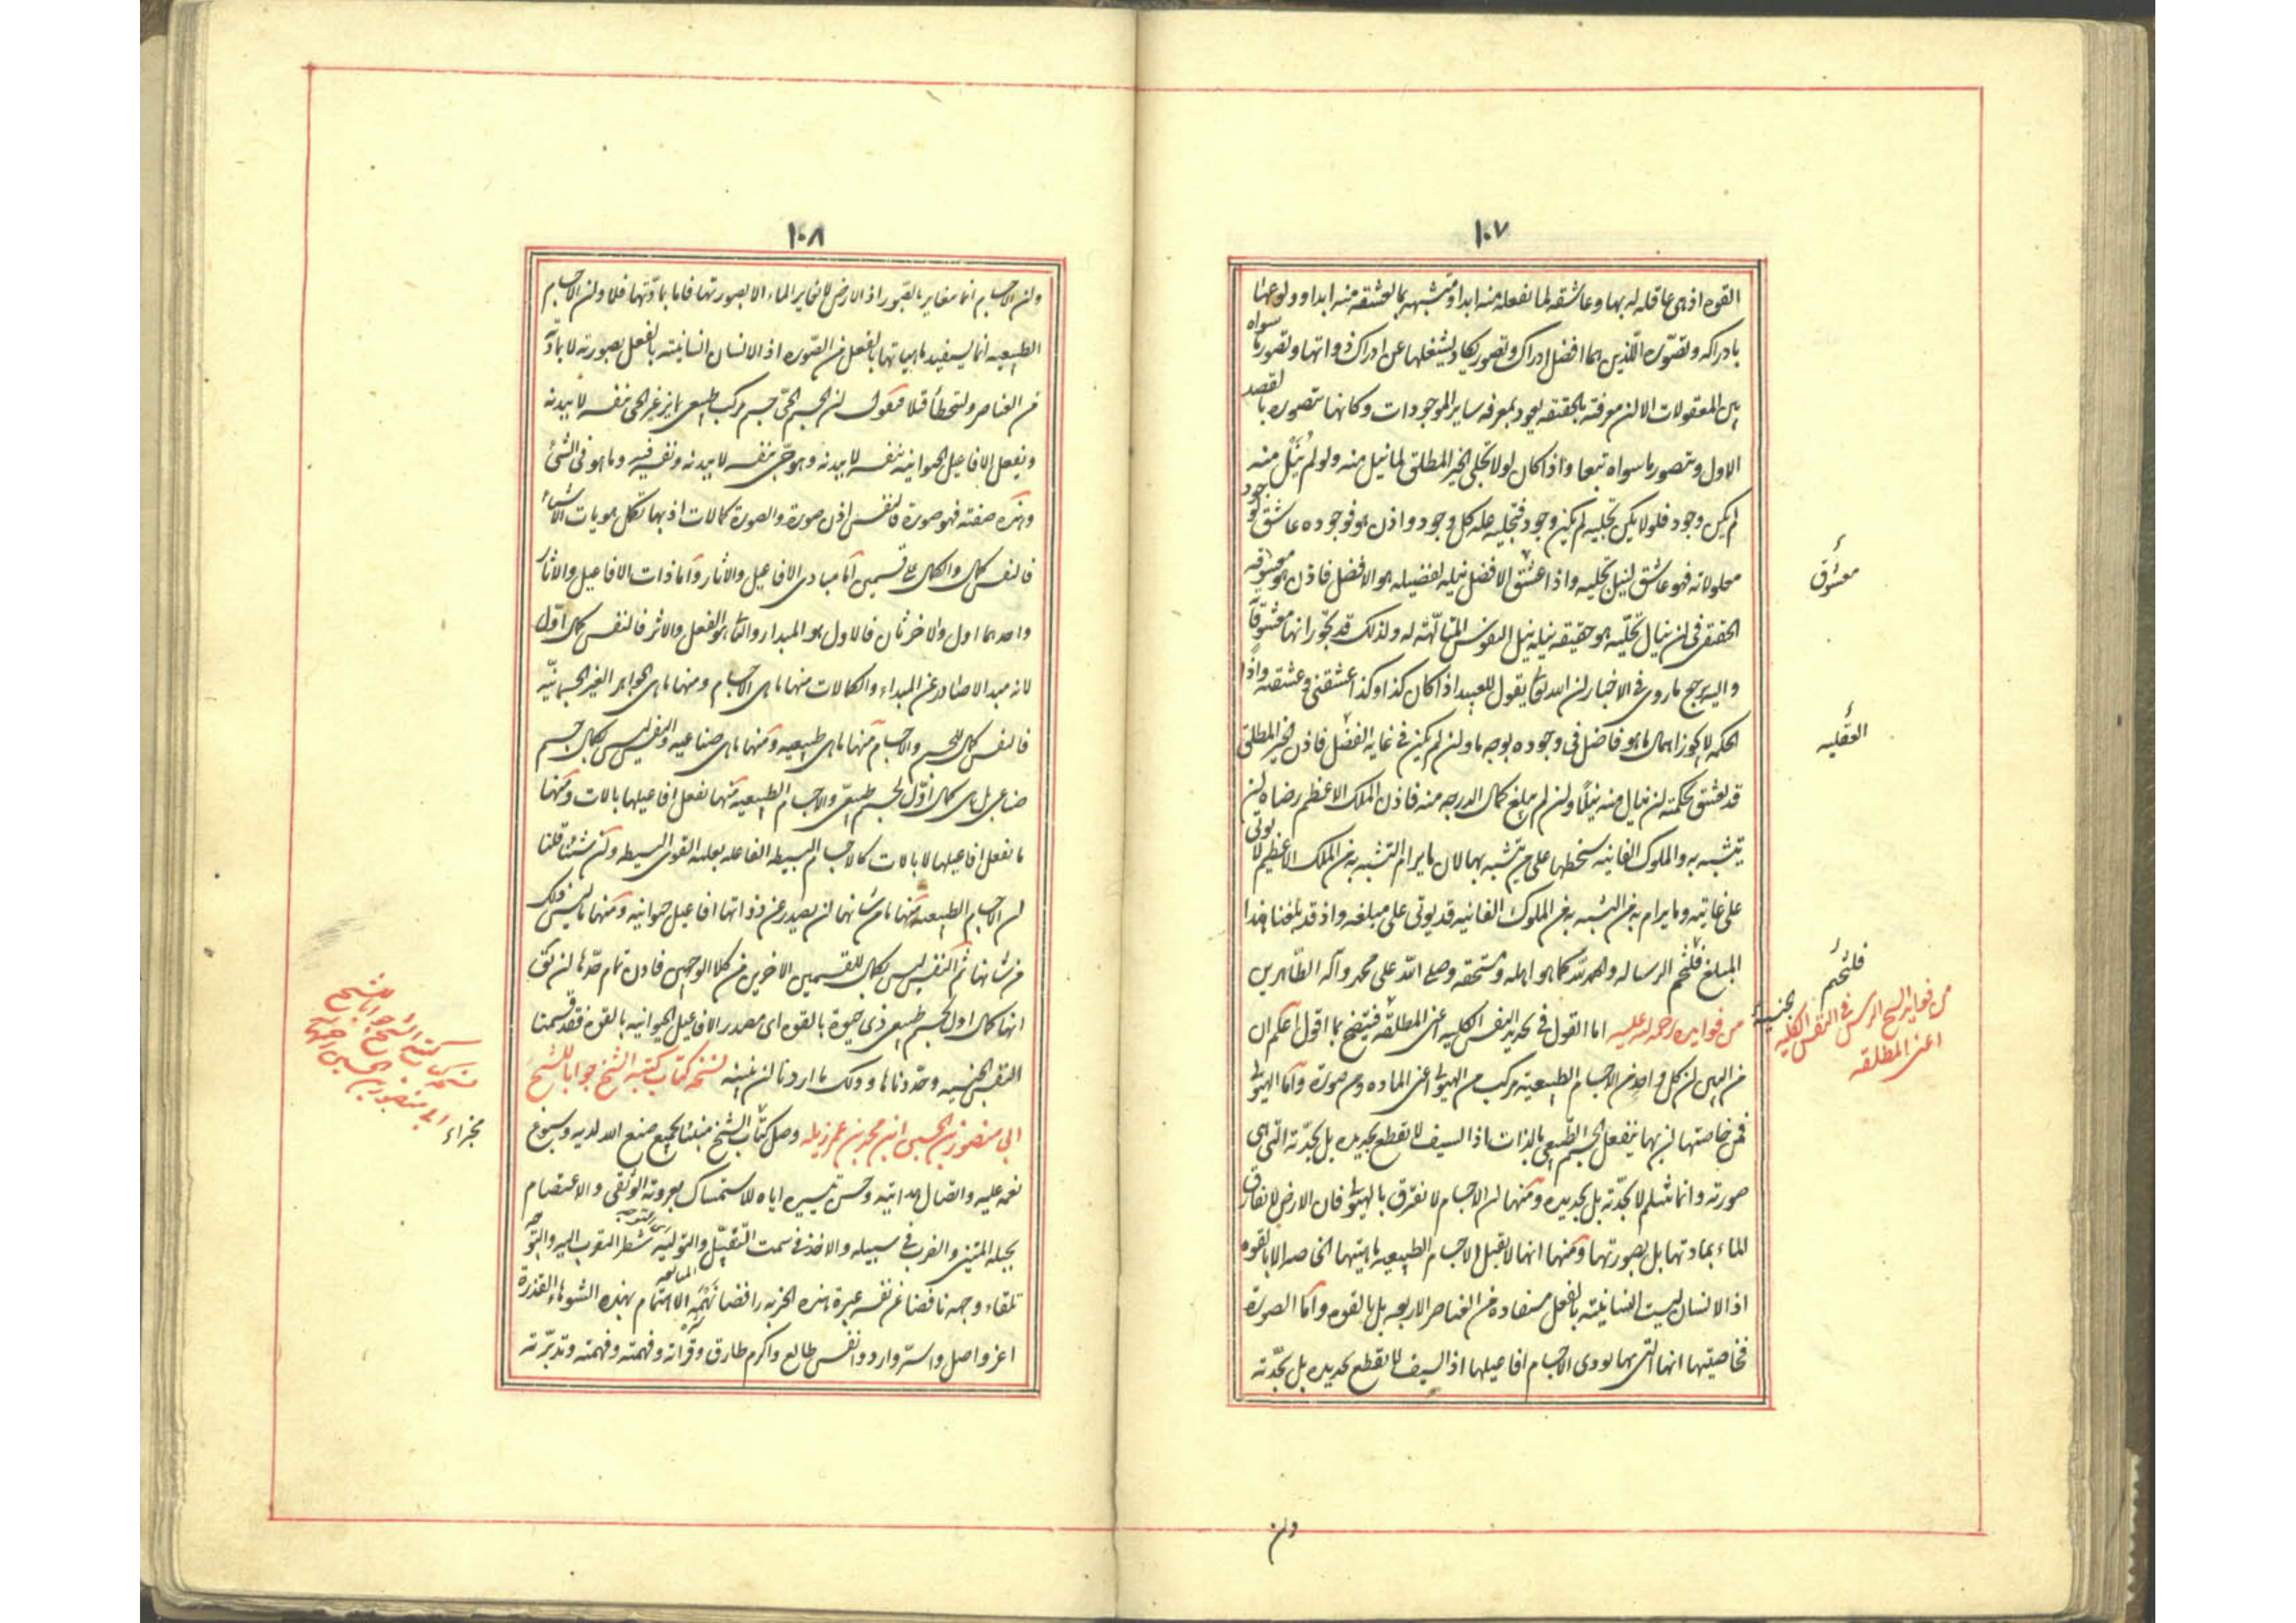 ١٠٧
القوه اذ هى عاقله له بها وعاشقه لما تفعله منه ابدا ومتشبهه بما تعشقه منه ابدا وولوعها
بادراكه وتصوره اللذين هما افضل ادراك وتصور يكاد يشغلها عن ادراك ذواتها وتصور ما سواه
من المعقولات الا ان معرفته بالحقيقه يعود بمعرفه ساير الموجودات وكانها تتصوره بالقصد
الاول وتتصور ما سواه تبعا واذا كان لولا تجلى الخير المطلق لما نيل منه ولو لم ينل منه
لم يكن وجود فلولا يكن تجليه لم يكن وجود فتجليه عله كل وجود واذن هو فوجوده عاشق لوجود
معلولاته فهو عاشق لنيل تجليه واذا عشق الافضل نيله لفضيله هو الافضل فاذن هو معشوقه
الحقيقى فى ان ينال تجليه هو حقيقه نيله نيل النفوس المتالهه له ولذلك قد يجوز انها معشوقاته
واليه يرجع ما روى فى الاخبار ان الله تعالى يقول للعبد اذا كان كذا وكذا عشقنى وعشقته واذا
الحكمه لا يجوز اهمال ما هو فاضل فى وجوده بوجه ما وان لم يكن فى غايه الفضل فاذن الخير المطلق
قد يعشق بحكمته ان ينال منه نيلا وان لم يبلغ كمال الدرجه منه فاذن الملك الاعظم رضاه ان
يتشبه به والملوك الفانيه سخطها على من يتشبه بها لان ما يرام التشبه به من الملك الاعظم لا يوتى
على غايته وما يرام به من التشبه به من الملوك الفانيه قد يوتى على مبلغه واذ قد بلغنا هذا
المبلغ فلنختم الرساله والحمد لله كما هو اهله ومستحقه وصلى الله على محمد وآله الطاهرين
من فوايده رحمه الله عليه اما القول فى تحديد النفس الكليه اعنى المطلقه فيتضح بما اقول اعلم ان
من البين ان كل واحد من الاجسام الطبيعيه مركب من الهيولى اعنى الماده ومن صوره واما الهيولى
فمن خاصتها ان بها ينفعل الجسم الطبيعى بالذات اذ السيف لا يقطع بحديده بل بحدته التى هى
صورته وانما ينثلم لا بحدته بل بحديده ومنها ان الاجسام لا تفترق بالهيولى فان الارض لا تفارق
الماء بمادتها بل بصورتها ومنها انها لا تقبل الاجسام الطبيعيه ماهيتها الخاصه الا بالقوه
اذ الانسان ليست انسانيته بالفعل مستفاده من العناصر الاربعه بل بالقوه واما الصورة
فخاصيتها انها التى بها تودى الاجسام افاعيلها اذ السيف لا يقطع بحديده بل بحدته
معشوق
العقليه
فلنختم
الجنسيه
من فوايد الشيخ الرئيس فى النفس الكليه
اعنى المطلقه
وان
١٠٨
وان الاجسام انما تتغاير بالصور اذ الارض لا تغاير الماء الا بصورتها فاما بمادتها فلا وان الاجسام
الطبيعيه انما يستفيد ماهياتها بالفعل من الصوره اذ الانسان انسانيته بالفعل بصورته لا بمادته
من العناصر ولنتخط قليلا فنقول ان الجسم الحى جسم مركب طبيعى يمايز غير الحى بنفسه لا ببدنه
ويفعل الافاعيل الحيوانيه بنفسه لا ببدنه وهو حى بنفسه لا ببدنه ونفسه فيه وما هو فى الشئ
وهذه صفته فهو صورة فالنفس اذن صورة والصورة كمالات اذ بها تكمل هويات الاشياء
فالنفس كمال والكمال على قسمين اما مبادى الافاعيل والاثار واما ذات الافاعيل والاثار
واحدهما اول والاخر ثان فالاول هو المبدا والثانى هو الفعل والاثر فالنفس كمال اول
لانه مبدا لا صادر عن المبداء والكمالات منها ما هى الاجسام ومنها ما هى الجواهر الغير الجسمانيه
فالنفس كمال للجسم والاجسام منها ما هى طبيعيه ومنها ما هى صناعيه والنفس ليس بكمال جسم
صناعى بل هى كمال اول لجسم طبيعى والاجسام الطبيعيه منها تفعل افاعيلها بالات ومنها
ما تفعل افاعيلها لا بالات كالاجسام البسيطه الفاعله بغلبه القوى البسيطه وان شئنا قلنا
ان الاجسام الطبيعيه منها ما من شانها ان يصدر عن ذواتها افاعيل حيوانيه ومنها ما ليس ذلك
من شانها ثم النفس ليس بكمال للقسمين الاخرين من كلا الوجهين فاذن تمام حدها ان تقال
انها كمال اول لجسم طبيعى ذى حيوة بالقوه اى مصدر الافاعيل الحيوانيه بالقوه فقد قسمنا
النفس الجنسيه وحددناها وذلك ما اردنا ان نبينه نسخة كتاب كتبه الشيخ جوابا للشيخ
ابى منصور بن الحسين ابن محمد بن عمر زيله وصل كتاب الشيخ مبنئا بجميع صنع الله لديه وسبوغ
نعمه عليه واتصال هدايته وحسن تيسيره اياه للاستمساك بعروته الوثقى والاعتصام
بحبله المتين والضرب فى سبيله والاخذ فى سمت التقبل والتوليه شطر التقرب اليه والتوجه
تلقاء وجهه نافضا عن نفسه غبرة هذه الخربه رافضا بهمته الاهتمام بهذه الشوهاء القذرة
اعز واصل واسر وارد وانفس طالع واكرم طارق وقراته وفهمته وفهمته وتدبرته
نسخه كتاب كتبه الشيخ جوابا للشيخ
ابى منصور بن الحسين